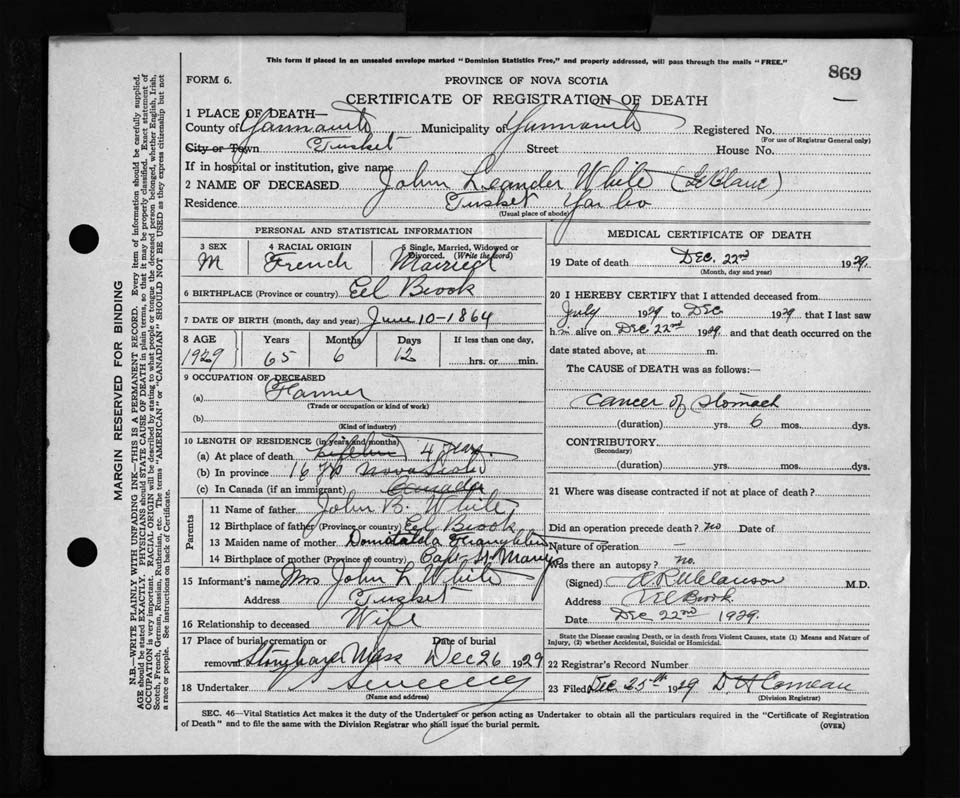 This form if placed in an unsealed envelope marked "Dominion Statistics Free," and properly addressed, will pass through the mails "FREE."
869
FORM 6.
PROVINCE OF NOVA SCOTIA
CERTIFICATE OF REGISTRATION OF DEATH
1 PLACE OF DEATH—
County of Yarmouth Municipality of Yarmouth Registered No.
(For use of Registrar General only)
City or Town Tusket Street House No.
If in hospital or institution, give name
2 NAME OF DECEASED John Leander White (LeBlanc)
Residence Tusket Yar Co
(Usual place of abode)
PERSONAL AND STATISTICAL INFORMATION
3 SEX 4 RACIAL ORIGIN 5 Single, Married, Widowed or Divorced. (Write the word)
M French Married
6 BIRTHPLACE (Province or country) Eel Brook
7 DATE OF BIRTH (month, day and year) June 10-1864
8 AGE Years Months Days If less than one day,
1929 65 6 12 hrs. or min.
9 OCCUPATION OF DECEASED
(a) Farmer
(Trade or occupation or kind of work)
(b)
(Kind of industry)
10 LENGTH OF RESIDENCE (in years and months)
(a) At place of death 4 years
(b) In province 16 yrs Nova Scotia
(c) In Canada (if an immigrant) Canada
Parents
11 Name of father John B. White
12 Birthplace of father (Province or country) Eel Brook
13 Maiden name of mother
14 Birthplace of mother (Province or country) St Marys
15 Informant's name Mrs John L White
Address Tusket
16 Relationship to deceased Wife
17 Place of burial, cremation or Date of burial
removal Mass Dec 26 1929
18 Undertaker
(Name and address)
MEDICAL CERTIFICATE OF DEATH
19 Date of death Dec. 22nd 1929.
(Month, day and year)
20 I HEREBY CERTIFY that I attended deceased from
July 1929 to Dec 1929 that I last saw
him alive on Dec 22nd 1929 and that death occurred on the
date stated above, at m.
The CAUSE OF DEATH was as follows:—
Cancer of Stomach
(duration) yrs. 6 mos. dys.
CONTRIBUTORY.
(Secondary)
(duration) yrs. mos. dys.
21 Where was disease contracted if not at place of death?
Did an operation precede death? no Date of
Nature of operation —
Was there an autopsy? no.
(Signed) M.D.
Address Eel Brook
Date Dec 22nd 1929.
State the Disease causing Death, or in death from Violent Causes, state (1) Means and Nature of
Injury, (2) whether Accidental, Suicidal or Homicidal.
22 Registrar's Record Number
23 Filed Dec 25th 1929 D H Comeau
(Division Registrar)
SEC. 46—Vital Statistics Act makes it the duty of the Undertaker or person acting as Undertaker to obtain all the particulars required in the "Certificate of Registration
of Death" and to file the same with the Division Registrar who shall issue the burial permit.
(OVER)
MARGIN RESERVED FOR BINDING
N.B.—WRITE PLAINLY WITH UNFADING INK—THIS IS A PERMANENT RECORD. Every item of information should be carefully supplied.
AGE should be stated EXACTLY. PHYSICIANS should STATE CAUSE OF DEATH in plain terms, so that it may be properly classified. Exact statement of
OCCUPATION is very important. RACIAL ORIGIN will be described by stating to what people or tongue the deceased person belonged, whether English, Irish,
Scotch, French, German, Russian, Ruthenian, etc. The terms "AMERICAN" or "CANADIAN" SHOULD NOT BE USED as they express citizenship but not
a race or people. See instructions on back of Certificate.